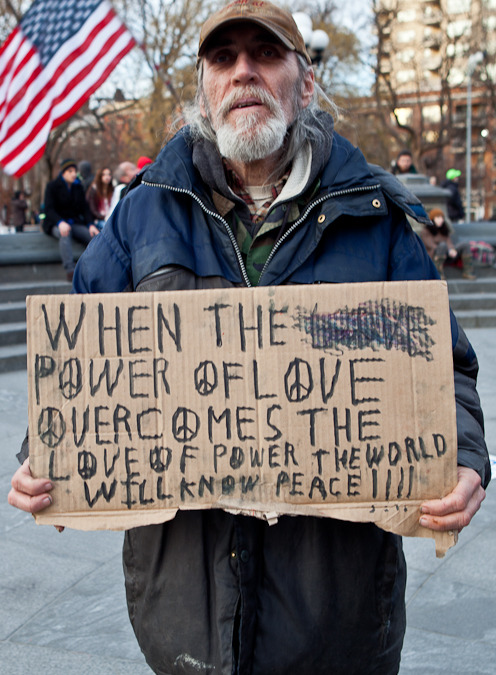 WHEN THE
POWER OF LOVE
OVERCOMES THE
LOVE OF POWER THE WORLD
WILL KNOW PEACE!!!!